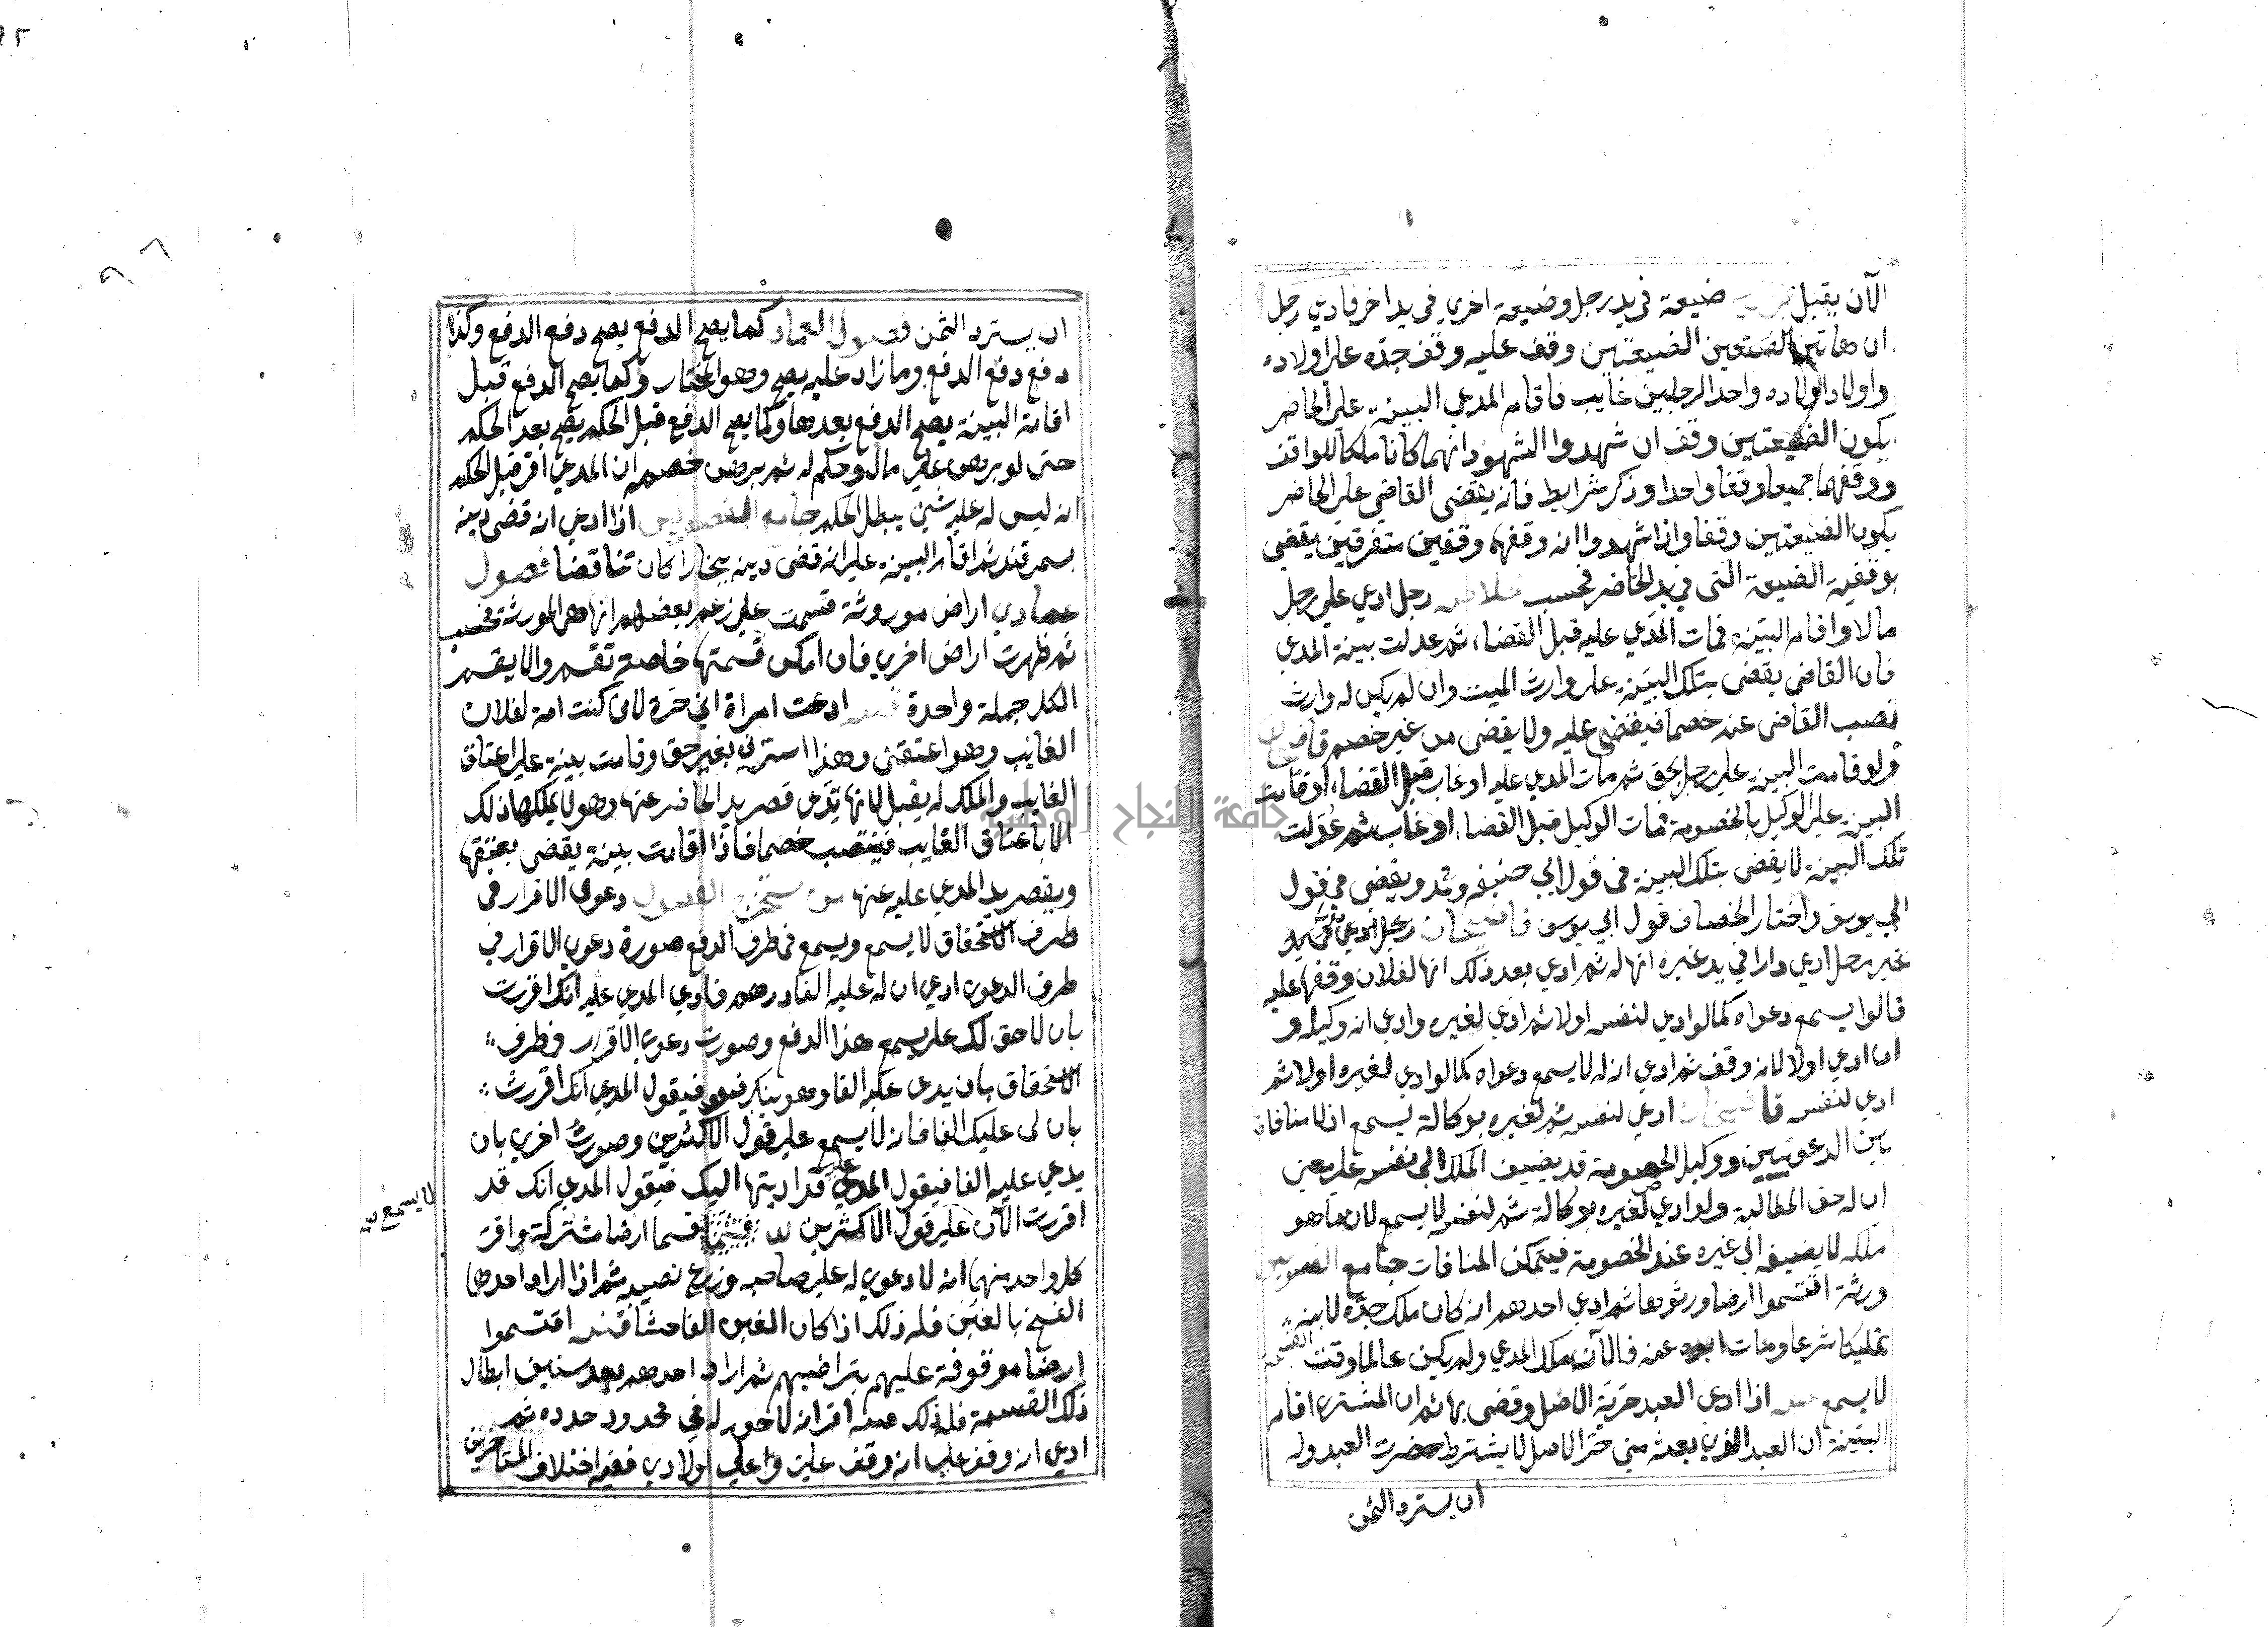 الآن يقبل ضيعة في يد رجل وضيعة اخري في يد اخر فادعي رجل
ان هاتين الضيعتين وقف عليه وقف جده علي اولاده
واولاد اولاده واحد الرجلين غايب فاقام المدعي البينة علي الحاضر
يكون الضيعتين وقف ان شهدوا الشهود انهما كانا ملكا للواقف
ووقفهما جميعا وقفا واحدا وذكر شرايط فانه يقضي القاضي علي الحاضر
بكون الضيعتين وقفا واذا شهدوا انه وقفهما وقفين متفرقين يقضي
بوقفية الضيعة التي في يد الحاضر فحسب خلاصه رجل ادعي علي رجل
مالا واقام البينة فمات المدعي عليه قبل القضاء ثم عدلت بينة المدعي
فان القاضي يقضي بتلك البينة علي وارث الميت وان لم يكن له وارث
نصب القاضي عنه خصما فيقضي عليه ولا يقضي من غير خصم قاضيخان
ولو قامت البينة علي رجل بحق ثم مات المدعي عليه او غاب قبل القضاء او قامت
البينة علي الوكيل بالخصومة فمات الوكيل قبل القضاء او غاب ثم عدلت
تلك البينة لا يقضي بتلك البينة في قول ابي حنيفه ومحمد ويقضي في قول
ابي يوسف واختار الخصاف قول ابي يوسف قاضيخان رجل ادعي في يد
غير رجل ادعي دارا في يد غيره انها له ثم ادعي بعد ذلك انها لفلان وقفها عليه
قالوا يسمع دعواه كما لو ادعي لنفسه اولا ثم ادعي لغيره وادعي انه وكيله و
ان ادعي اولا لانه وقف ثم ادعي انه له لا يسمع دعواه كما لو ادعي لغيره اولا ثم
ادعي لنفسه قاضيخان ادعي لنفسه ثم لغيره بوكالة يسمع اذ لا منافاة
بين الدعوتين ووكيل الخصومة قد يضيف الملك الي نفسه علي معني
ان له حق المطالبة ولو ادعي لغيره بوكالة ثم لنفسه لا يسمع لان ما هو
ملكه لا يضيفه الي غيره عند الخصومة فيتمكن المنافات جامع الفصولين
ورثة اقتسموا ارضا ورثوها ثم ادعي احدهم انه كان ملك جده لابنه
تمليكا شرعا ومات ابوه عنه فالآن ملك المدعي ولم يكن عالما وقت القسمة
لا يسمع منه اذا ادعي العبد حرية الاصل وقضي بها ثم ان المشتري اقام
البينة ان العبد الذي بعته مني حر الاصل لا يشترط حضرت العبد وله
ان يسترد الثمن
ان يسترد الثمن فصول العماد كما يصح الدفع يصح دفع الدفع وكذا
دفع دفع الدفع وما زاد عليه يصح وهو المختار وكما يصح الدفع قبل
اقامة البينة يصح الدفع بعدها وكما يصح الدفع قبل الحكم يصح بعد الحكم
حتي لو برهن علي مال وحكم له ثم برهن خصمه ان المدعي اقر قبل الحكم
انه ليس له عليه شيء يبطل الحكم جامع الفصولين اذا ادعي انه قضي دينه
بسمرقند ثم اقام البينة علي انه قضي دينه ببخارا كان تناقضا فصول
عمادي اراض موروثة قسمت علي زعم بعضهم انها هي المورثة فحسب
ثم ظهرت اراض اخري فان امكن قسمتها خاصة تقسم والا يقسم
الكل جملة واحدة قنيه ادعت امراة اني حرة لاني كنت امة لفلان
الغايب وهو اعتقني وهذا استرني بغير حق وقامت بينة علي اعتاق
الغايب والملك له يقبل لانها تدعي قصر يد الحاضر عنها وهو لا يملكها ذلك
الا باعتاق الغايب فينتصب خصما فاذا اقامت بينة يقضي بعتقها
ويقصر يد المدعي عليه عنها من الفصول دعوي الاقرار في
طرف الاستحقاق لا يسمع ويسمع في طرف الدفع صورة دعوي الاقرار في
طرف الدعوي ادعي ان له عليه الفا درهم فادعي المدعي عليه انك اقررت
بان لا حق لك علي يسمع هذا الدفع وصورت دعوي الاقرار في طرف
الاستحقاق بان يدعي عليه الفا وهو ينكر فيقول المدعي انك اقررت
بان لي عليك الفا فانه لا يسمع علي قول الاكثرين وصورت اخري بان
يدعي عليه الفا فيقول المدعي عليه قد اديتها اليك فيقول المدعي انك قد
اقررت الآن علي قول الاكثرين قسما ارضا مشتركة واقر
لا يسمع
كل واحد منهما انه لا دعوي له علي صاحبه وزرع نصيبه ثم اذا اراد احدهما
الفسخ بالغبن فله ذلك اذا كان الغبن الفاحشا قنيه اقتسموا
ارضا موقوفة عليهم بتراضيهم ثم اراد احدهم بعد سنين ابطال
ذلك القسمة فله ذلك منه اقر انه لا حق له في محدود حدده ثم
ادعي انه وقف علي انه وقف علي وعلي اولادي ففيه اختلاف المتاخرين